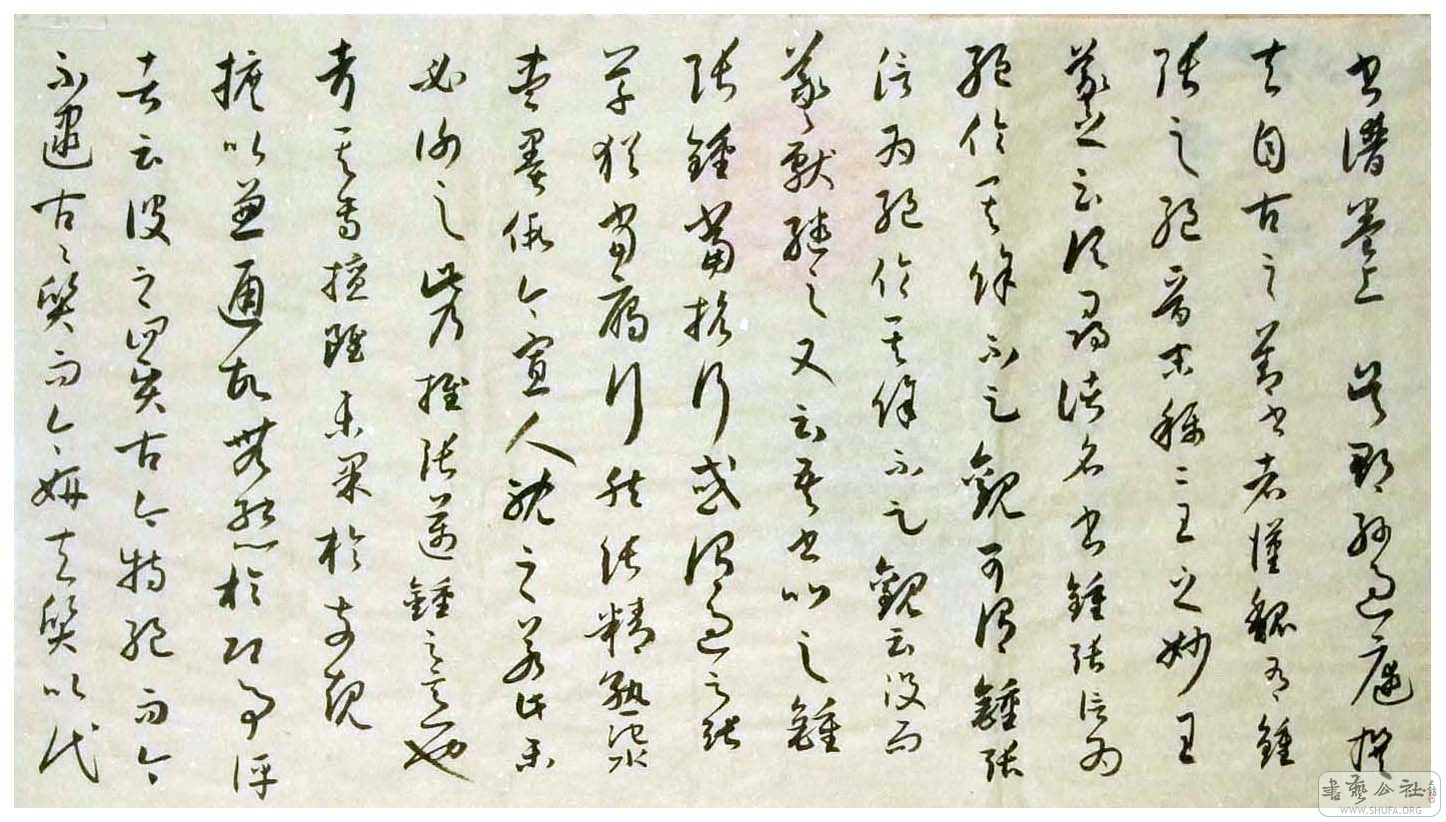 書譜卷上 吳郡孫過庭撰
夫自古之善書者漢魏有鍾
張之絕晉末稱二王之妙王
羲之云頃尋諸名書鍾張信為
絕倫其餘不足觀可謂鍾張
信為絕倫其餘不足觀云沒而
羲獻繼之又云吾書比之鍾
張鍾當抗行或謂過之張
草猶當雁行然張精熟池水
盡墨假令寡人耽之若此未
必謝之此乃推張邁鍾之意也
考其專擅雖未果於前規
摭以兼通故無慙於即事評
者云彼之四賢古今特絕而今
不逮古古質而今妍夫質以代
書藝公社
WWW.SHUFA.ORG